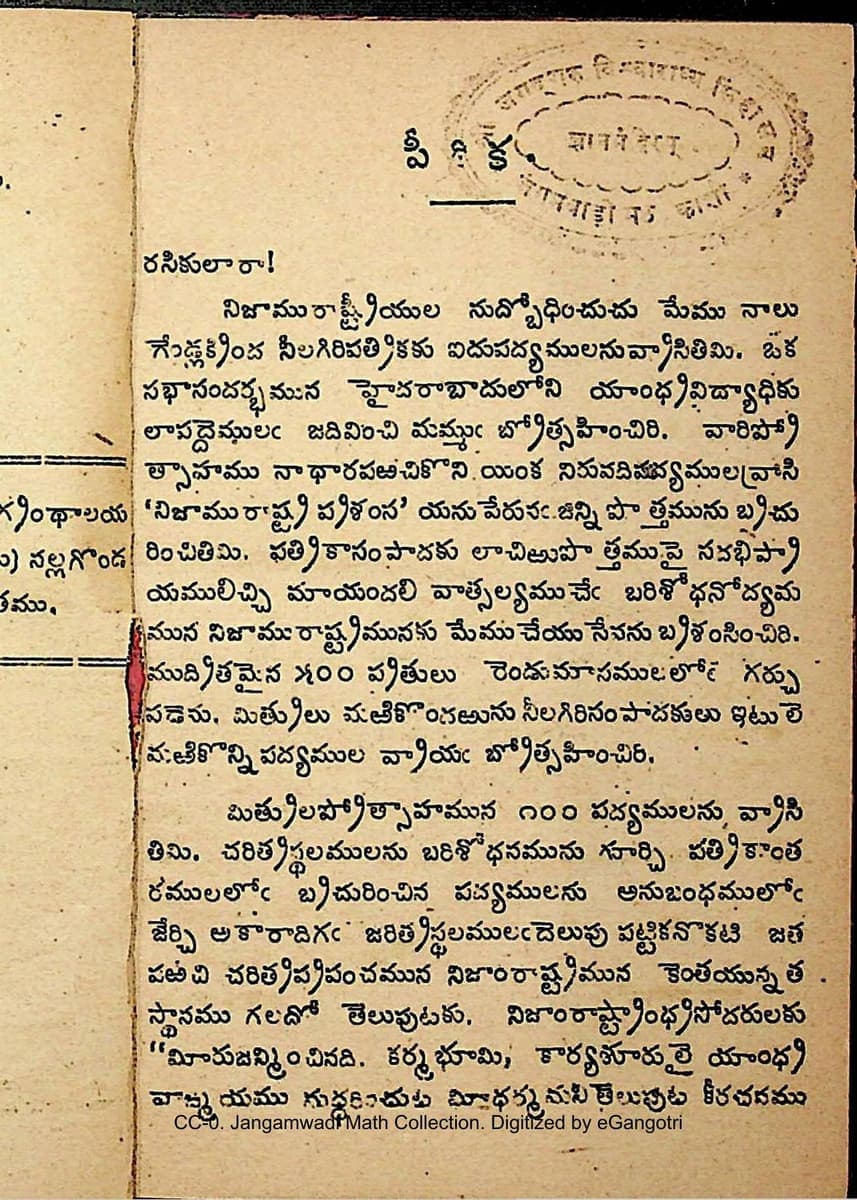 గ్రంథాలయ
నల్లగొండ
పీఠిక.
రసికులారా!
నిజాము రాష్ట్రీయుల నుద్బోధించుచు మేము నాలు
గేండ్లక్రింద నీలగిరిపత్రికకు ఐదుపద్యములను వ్రాసితిమి. ఒక
సభాసందర్భమున హైదరాబాదులోని యాంధ్రవిద్యాధికు
లాపద్దెములఁ జదివించి మమ్ముఁ బ్రోత్సహించిరి. వారిప్రో
త్సాహము నాధారపఱచికొని యింక నిరువదిపద్యముల వ్రాసి
'నిజాము రాష్ట్ర ప్రశంస' యనుపేరునఁ జిన్ని పొత్తమును బ్రచు
రించితిమి. పత్రికాసంపాదకు లాచిఱుపొత్తముపై సదభిప్రా
యములిచ్చి మాయందలి వాత్సల్యముచేఁ బరిశోధనోద్యమ
మున నిజాము రాష్ట్రమునకు మేముచేయు సేవను బ్రశంసించిరి.
ముద్రితమైన ౫౦౦ ప్రతులు రెండుమాసములలోఁ గర్చు
పడెను. మిత్రులు మఱికొందఱును నీలగిరిసంపాదకులు ఇటులె
మఱికొన్ని పద్యముల వ్రాయఁ బ్రోత్సహించిరి.
మిత్రులప్రోత్సాహమున ౧౦౦ పద్యములను వ్రాసి
తిమి. చరిత్రస్థలములను బరిశోధనమును గూర్చి పత్రికాంత
రములలోఁ బ్రచురించిన పద్యములను అనుబంధములోఁ
జేర్చి అకారాదిగఁ జరిత్రస్థలములఁదెలుపు పట్టికనొకటి జత
పఱచి చరిత్రప్రపంచమున నిజాంరాష్ట్రమున కెంతయున్నత
స్థానము గలదో తెలుపుటకు. నిజాంరాష్ట్రాంధ్రసోదరులకు
"మీరుజన్మించినది. కర్మభూమి, కార్యశూరులై యాంధ్ర
వాఙ్మయము నుద్ధరించుట మీధర్మమని తెలుపుట కీరచనము
CC-0. Jangamwadi Math Collection. Digitized by eGangotri